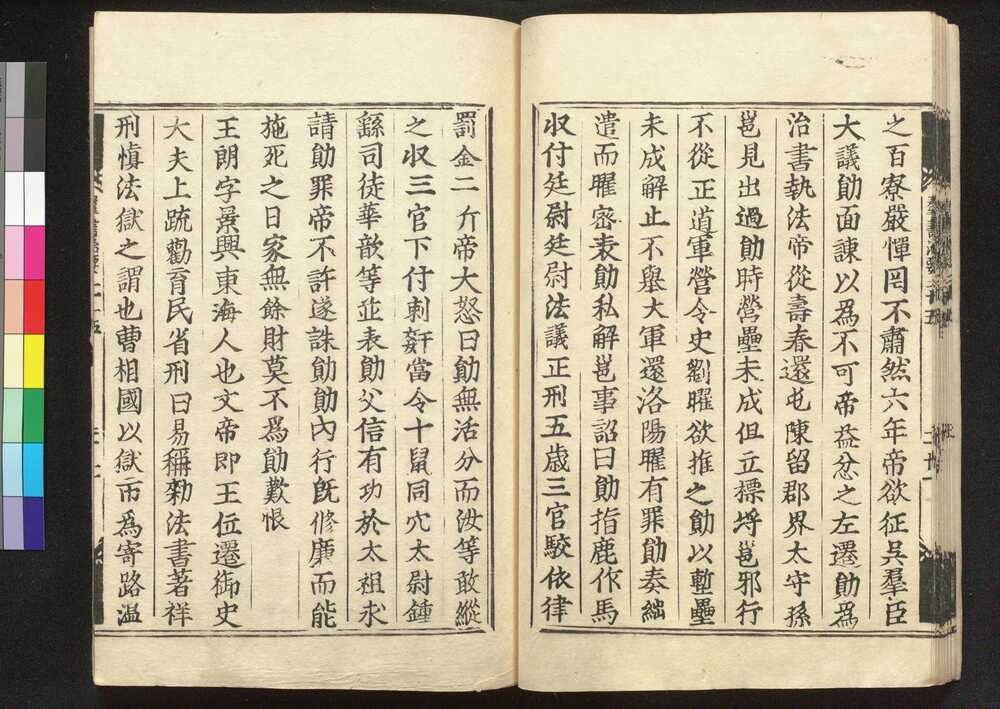 之百寮嚴憚罔不肅然六年帝欲征吳羣臣
大議勛面諫以爲不可帝益忿之左遷勛爲
治書執法帝從壽春還屯陳留郡界太守孫
邕見出過勛時營壘未成但立標埒邕邪行
不從正道軍營令史劉曜欲推之勛以塹壘
未成解止不舉大軍還洛陽曜有罪勛奏絀
遣而曜密表勛私解邕事詔曰勛指鹿作馬
収付廷尉廷尉法議正刑五歳三官駮依律
罰金二斤帝大怒曰勛無活分而汝等敢縱
之収三官下付刺姧當令十鼠同穴太尉鍾
繇司徒華歆等並表勛父信有功於太祖求
請勛罪帝不許遂誅勛勛內行旣修廉而能
施死之日家無餘財莫不爲勛歎恨
王朗字景興東海人也文帝即王位遷御史
大夫上疏勸育民省刑曰易稱勑法書著祥
刑愼法獄之謂也曹相國以獄市爲寄路温